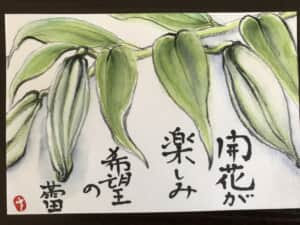 開花が
楽しみ
希望
の
蕾